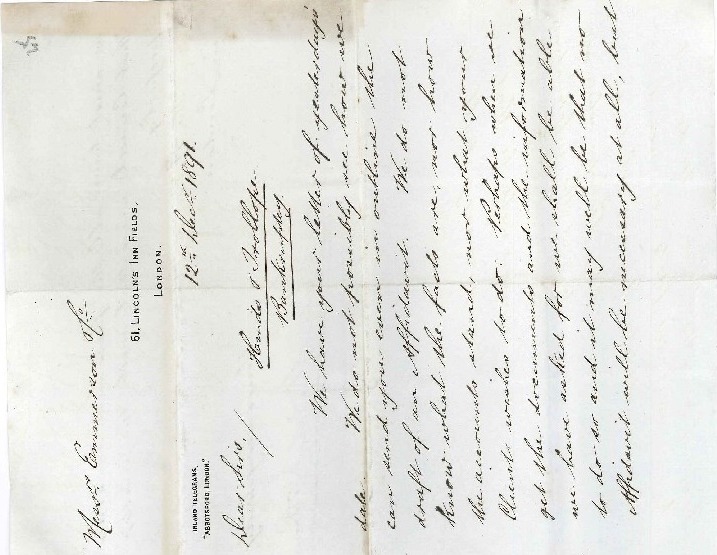 61, LINCOLN'S INN FIELDS,
LONDON.
INLAND TELEGRAMS,
"ABBOTSFORD LONDON."
12th Decr. 1891.
Messrs Emmerson & Co
Dear Sirs,
Hands & Trollope
Bankruptcy
We have your letter of yesterday's
date. We do not possibly see how we
can send you even an outline the
draft of an Affidavit. We do not
know what the facts are, nor how
the accounts stand, nor what your
Clients wishes to do. Perhaps when we
get the documents and the information
we have asked for we shall be able
to do so and it may well be that no
Affidavit will be necessary at all, but